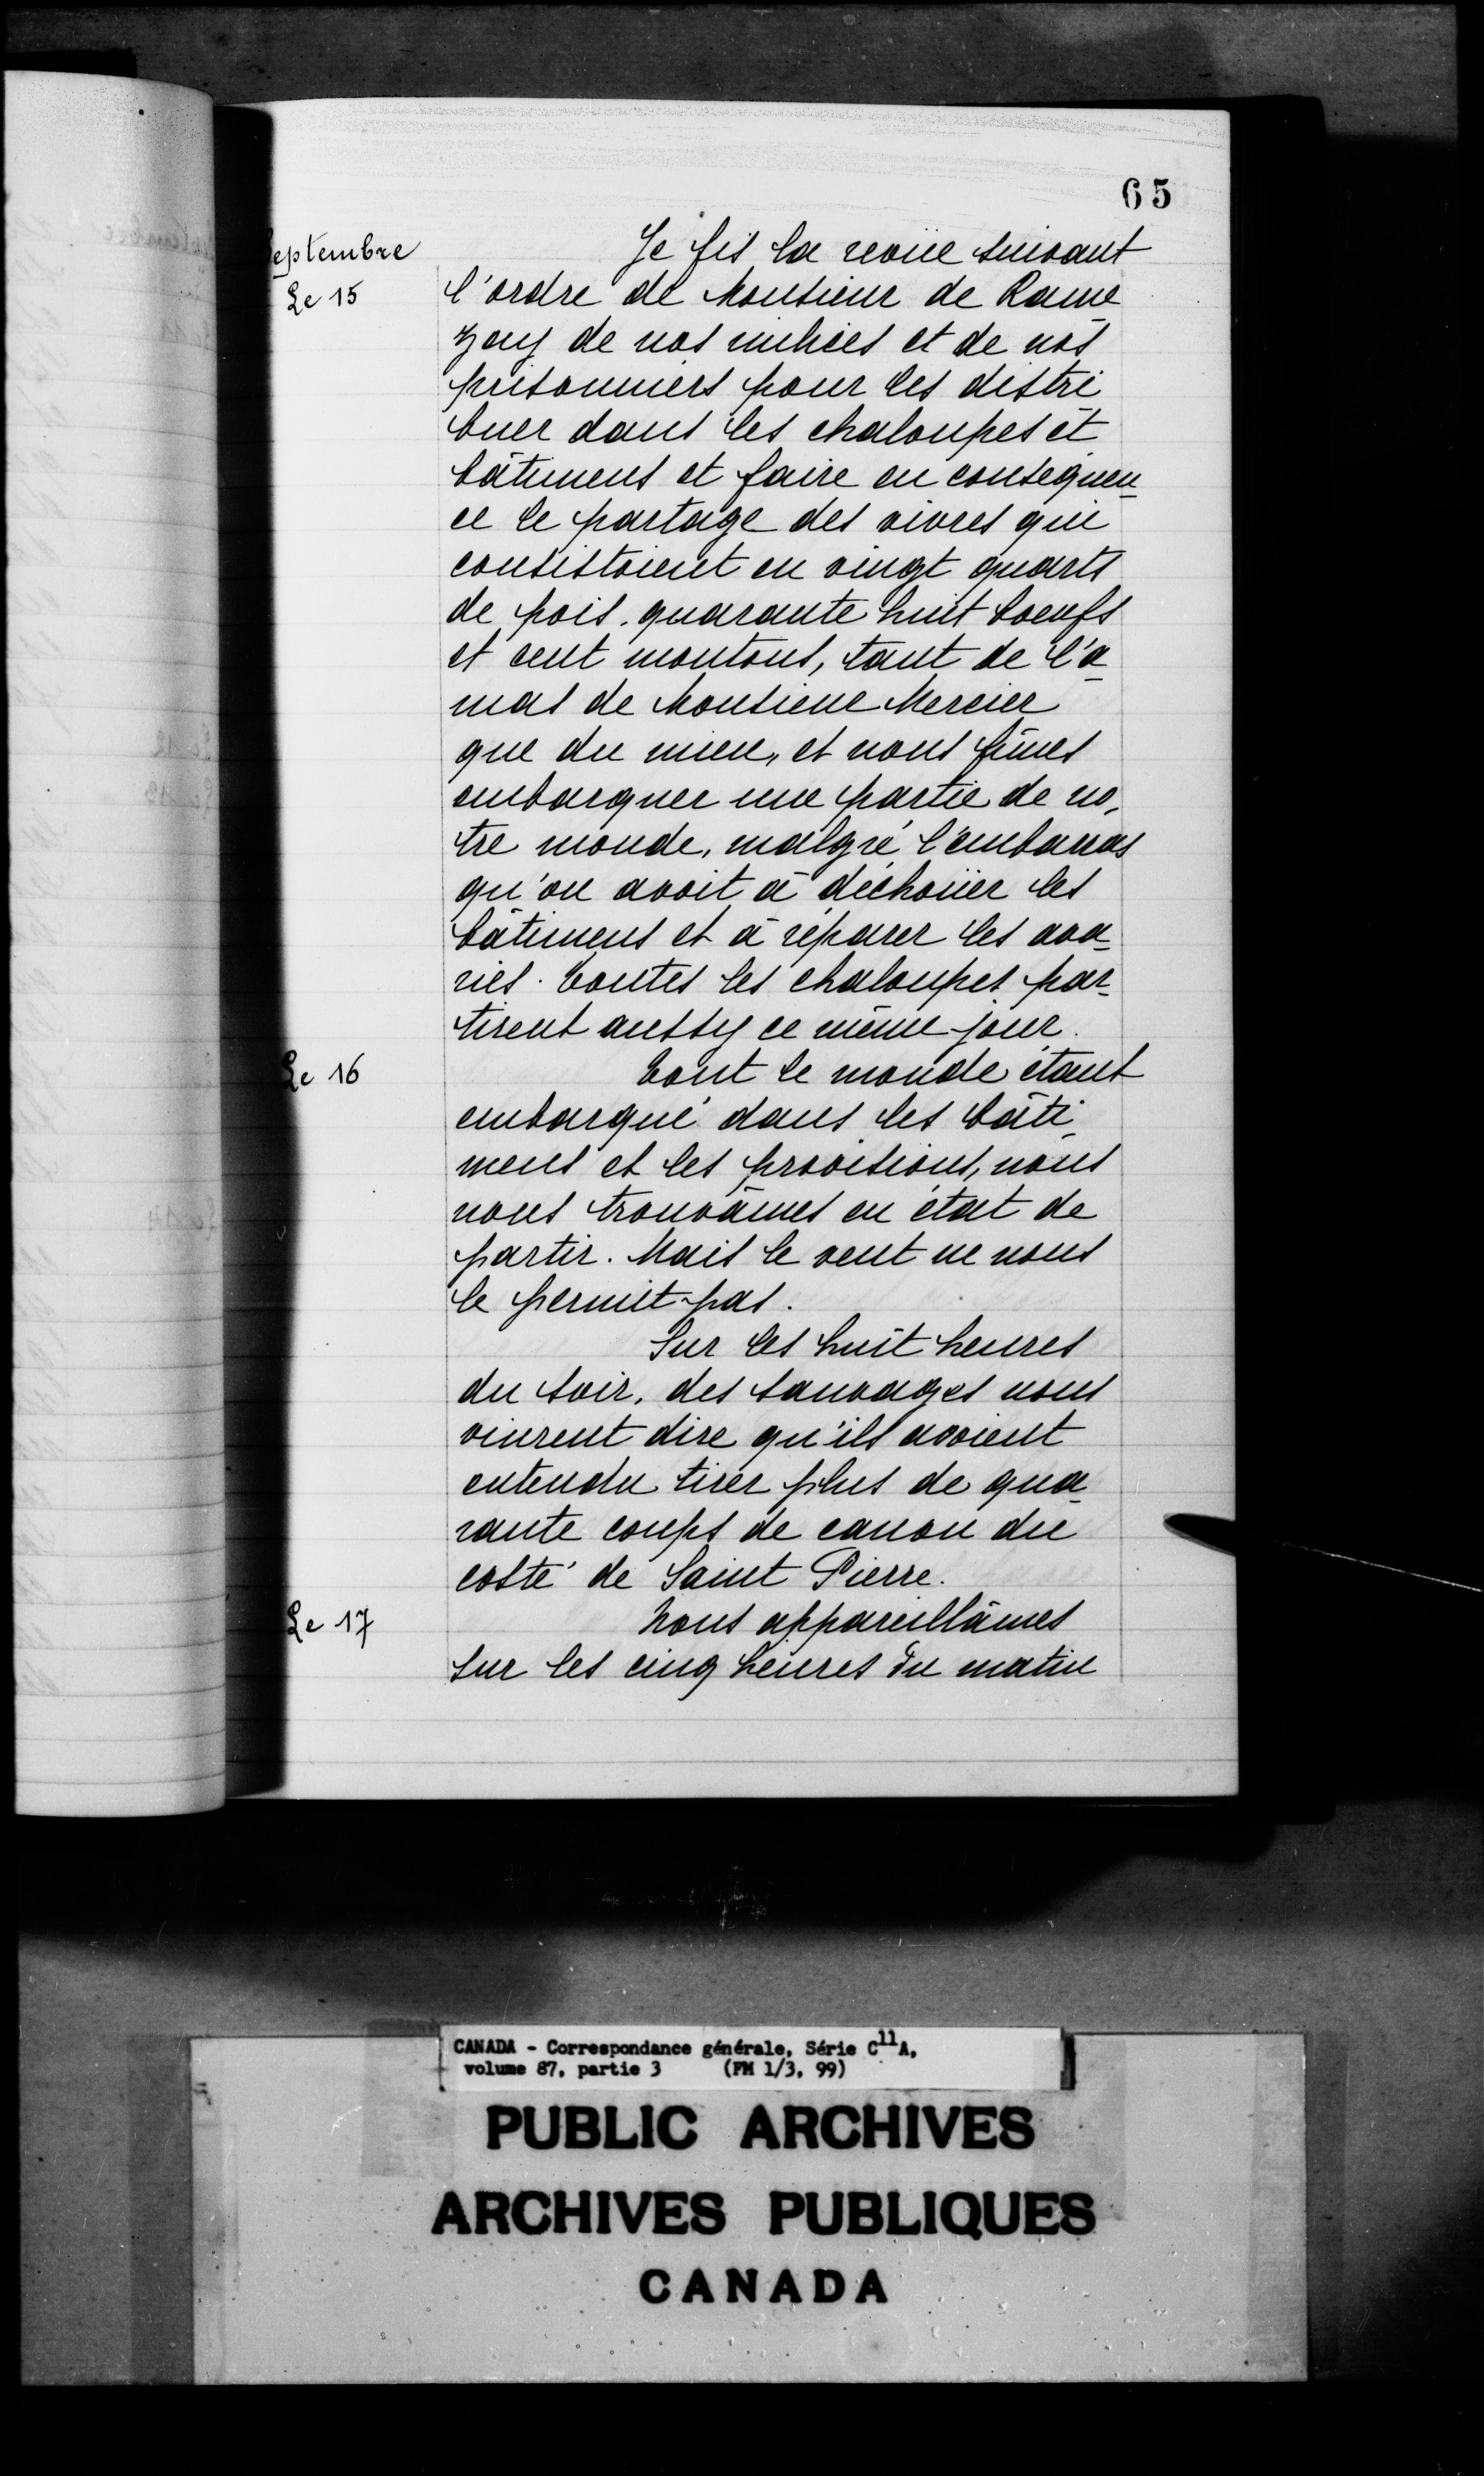 65
Septembre
Le 15
Je fis la revüe suivant
l'ordre de Monsieur de Rame
zay de nos milices et de nos
prisonniers pour les distri
buer dans les chaloupes et
bâtimens et faire en conséquen_
ce le partage des vivres qui
consistoient en vingt quarts
de pois, quarante huit boeufs
et cent moutons, tant de l'a_
mas de Monsieur Mercier
que du mien, et nous fimes
embarquer une partie de no_
tre monde, malgré l'embarras
qu'on avoit à déchoüer les
bâtimens et à réparer les ava_
ries. Toutes les chaloupes par_
tirent aussy ce même jour.
Le 16
Tout le monde étant
embarqué dans les bâti_
mens et les provisions, nous
nous trouvâmes en état de
partir. Mais le vent ne nous
le permit pas.
Sur les huit heures
du soir, des sauvages nous
vinrent dire qu'ils avoient
entendu tirer plus de qua_
rante coups de canon du
costé de Saint Pierre.
Le 17
Nous appareillâmes
sur les cinq heures du matin
CANADA - Correspondance générale, Série C11A,
volume 87, partie 3 (FM 1/3, 99)
PUBLIC ARCHIVES
ARCHIVES PUBLIQUES
CANADA